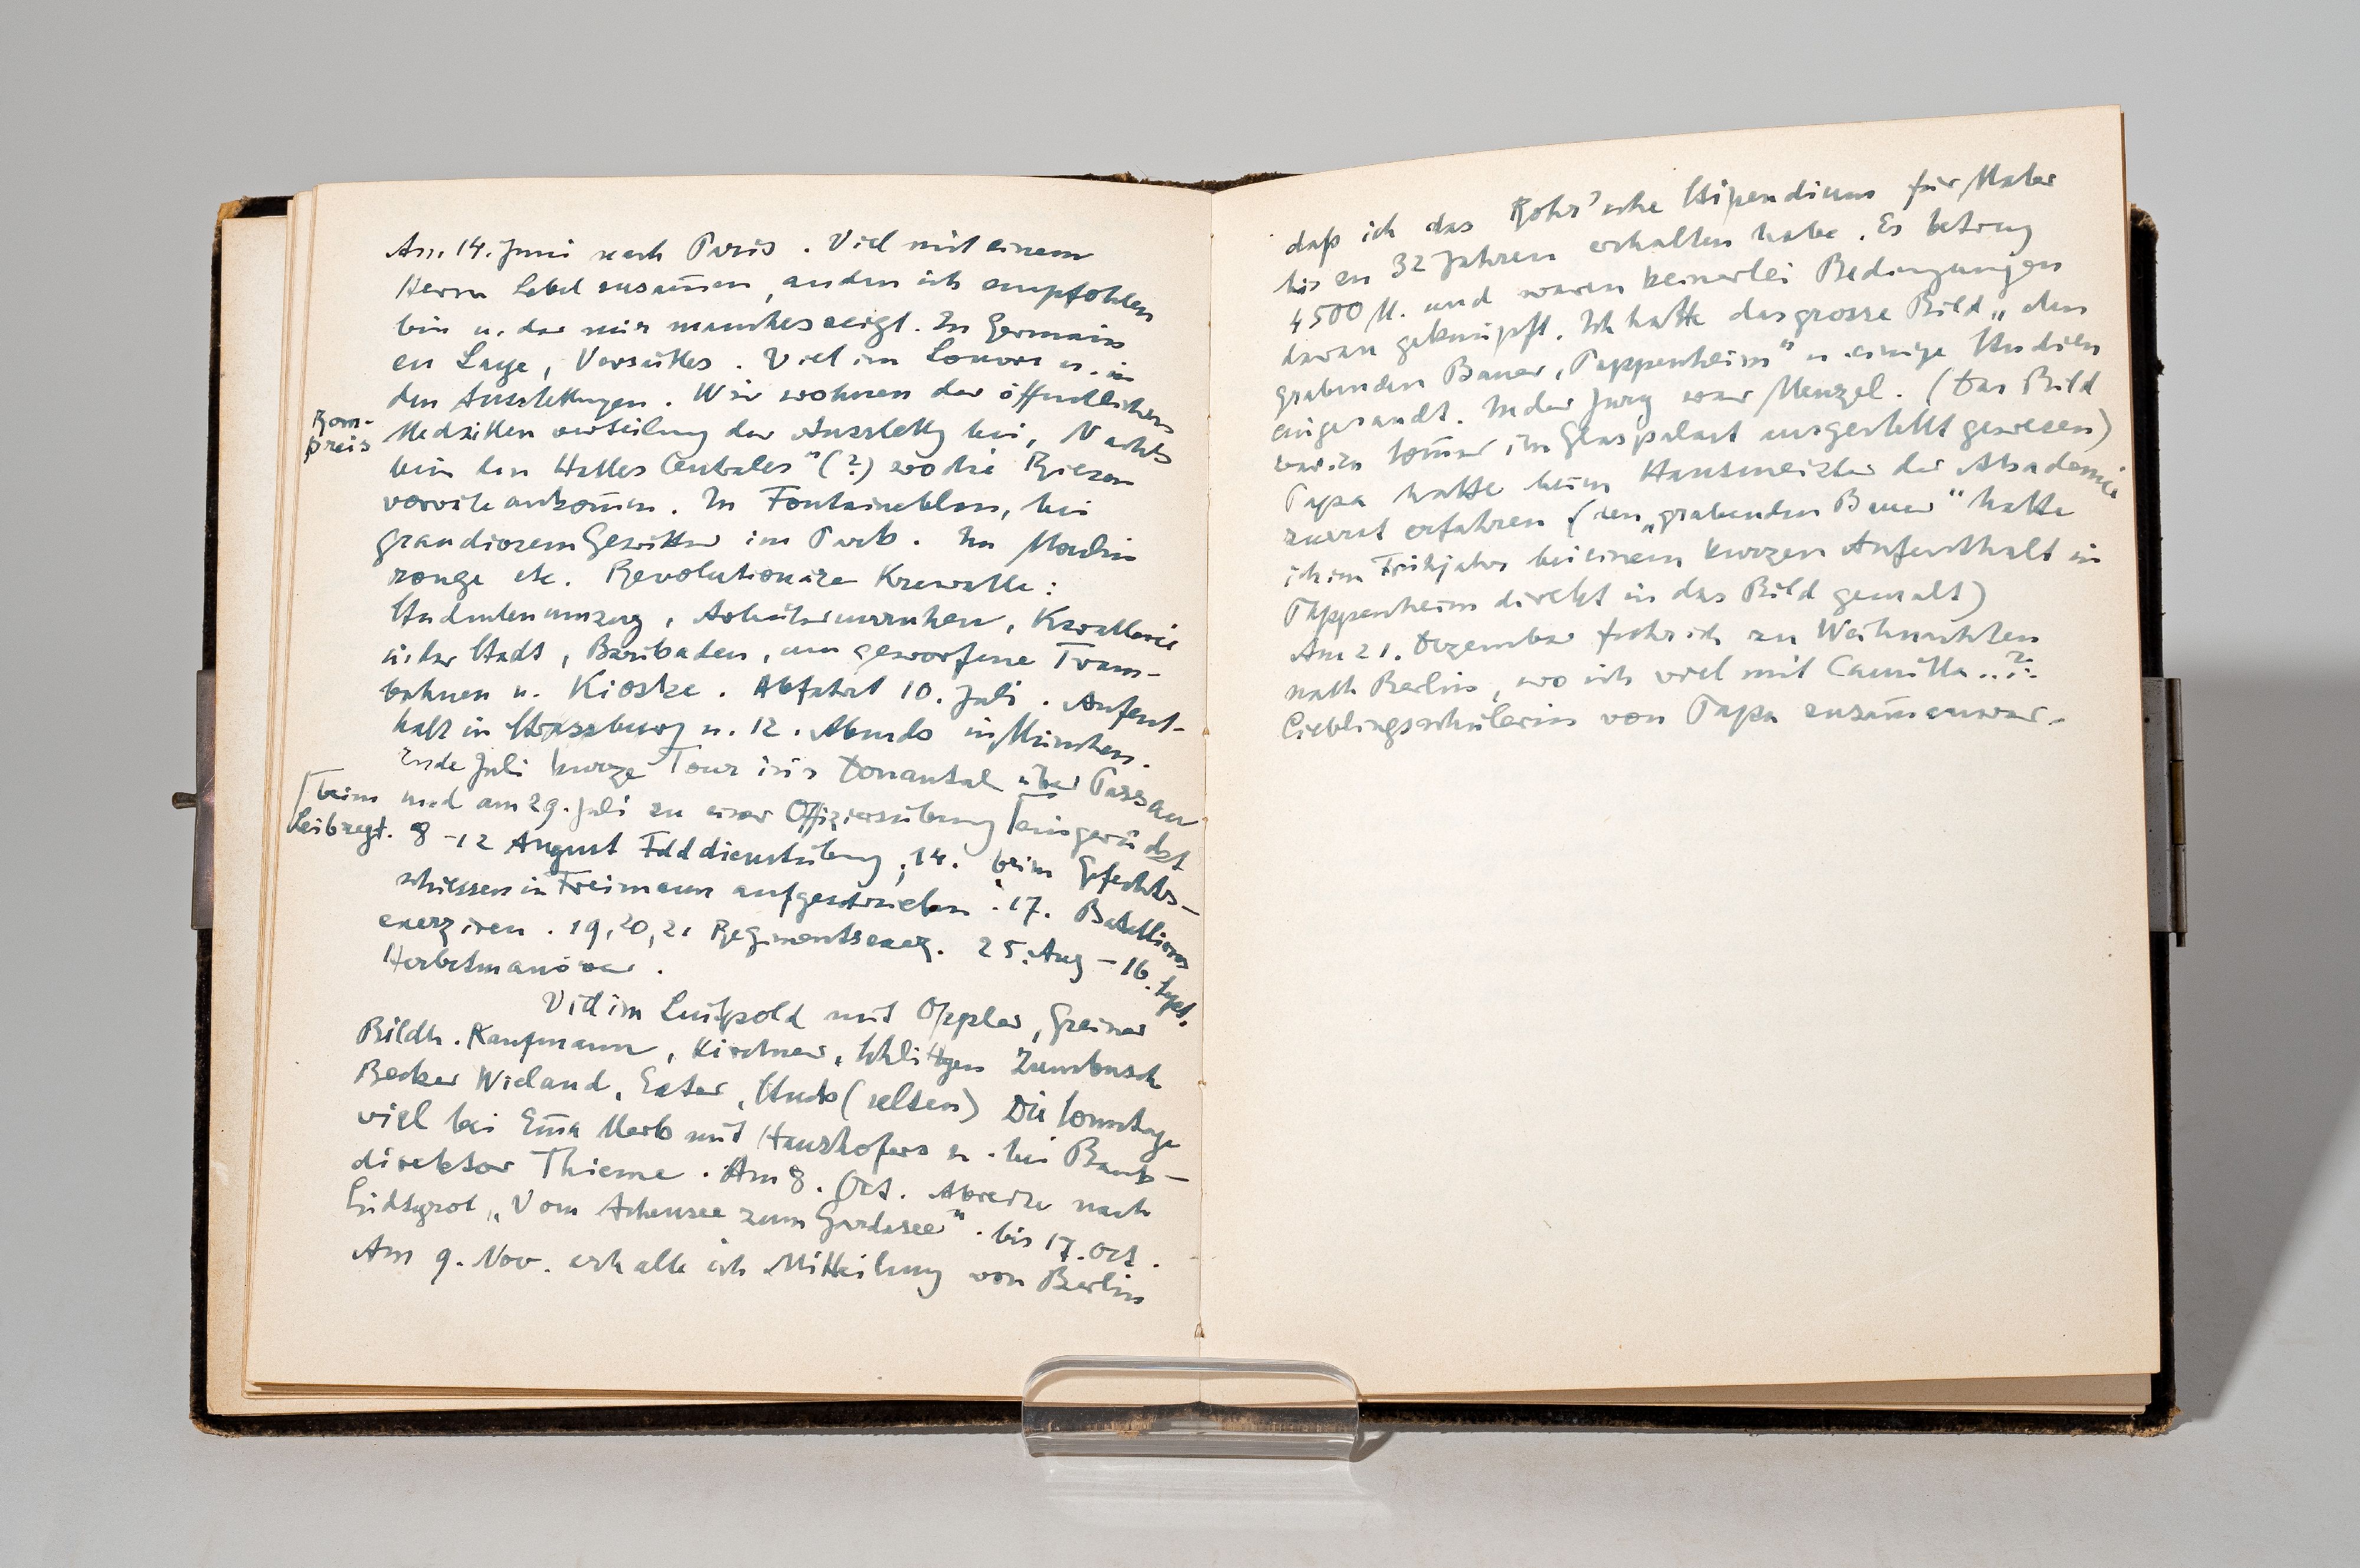 Am 14. Juni nach Paris. Viel mit einem
Herrn Lebel zusam̄en, an den ich empfohlen
bin u. der mir manches zeigt. In Germain
en Laye, Versailles. Viel im Louvre u. in
den Ausstellungen. Wir wohnen der öffentlichen
Rom-
preis
Medaillenverteilung der Ausstellg bei, Nachts
bei den Halles Centrales" (?) wo die Riesen
vorräte ankom̄en. In Fontainebleau, bei
grandiosem Gewitter im Park. Im Moulin
rouge etc. Revolutionäre Krawalle:
Studentenumzug, Arbeiterunruhen, Kavallerie
i. der Stadt, Barikaden, um geworfene Tram-
bahnen u. Kioske. Abfahrt 10. Juli. Aufent-
halt in Strassburg u. 12. Abends in München.
Ende Juli kurze Tour ins Donautal über Passau
und am 29. Juli zu einer Offiziersübung eingerückt
[beim
Leibregt. 8-12 August Felddienstübung, 14. beim Gefechts-
schiessen in Freimann aufgeschrieben. 17. Bataillons
exerziren. 19, 20, 21 Regimentsexerz. 25. Aug - 16. Sept.
Herbstmanöver.
Viel im Luitpold mit Oppler, Greiner
Bildh. Kaufmann, Kirchner, Schlittgen Zumbusch
Becker Wieland, Exter, Stuck (selten) Die Sonntage
viel bei Em̄a Merk mit Haushofers u. bei Bank-
direktor Thieme. Am 8. Oct. Abreise nach
Südtyrol „Vom Achensee zum Gardasee". bis 17. Oct.
Am 9. Nov. erhalte ich Mitteilung von Berlin
daß ich das Rohr'sche Stipendium für Maler
bis zu 32 Jahren erhalten habe. Es betrug
4500 M. und waren keinerlei Bedingungen
daran geknüpft. Ich hatte das grosse Bild „den
grabenden Bauer, Pappenheim" u. einige Studien
eingesandt. In der Jury war Menzel. (Das Bild
war im Som̄er im Glaspalast ausgestellt gewesen)
Papa hatte beim Hausmeister der Akademie
zuerst erfahren (den „grabenden Bauer" hatte
ich im Frühjahr bei einem kurzen Aufenthalt in
Pappenheim direkt in das Bild gemalt)
Am 21. Dezember fuhr ich zu Weihnachten
nach Berlin, wo ich viel mit Camilla..?.
Lieblingsschülerin von Papa zusam̄enwar.